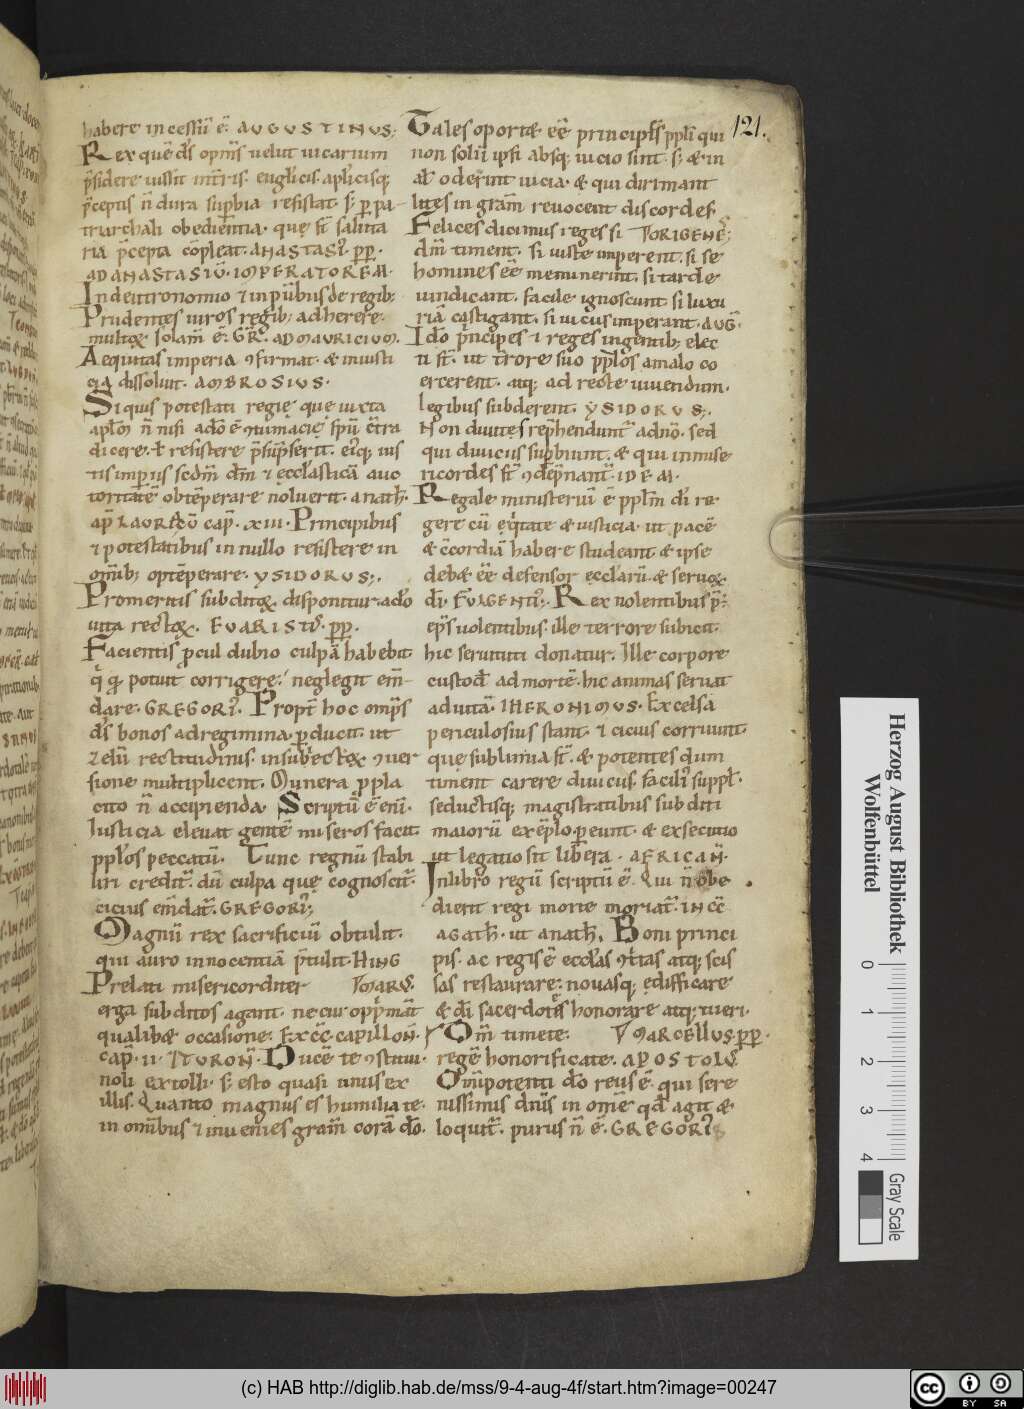 121.
habere incessũ ẽ. AUGUSTINUS;
Rex quẽ dš omp̄s uelut uicarium
p̄sidere iussit int̄ris. euglicis. aplicisq;
p̄ceptis ñ dura sup̄bia resistat. s; p pa
triarchali obedientia. quę st̄ salutta
ria p̄cepta cõpleat. ANASTASĪ. PP.
AD ANASTASIŨ. IMPERATOREM.
In deutronomio & in pũbus de regib;
Prudentes uiros regib; adherere.
multoꝝ solam̄ ẽ. GR̄. AD MAURICIUM.
Aequitas imperia ꝯfirmat. & iniusti
cia dissoluit. AMBROSIUS.
Si quis potestati regię quę iuxta
ap̄lm ñ nisi a dõ ẽ ꝯtumacię spũ cõtra
dicere. ł resistere p̄sũpserit. eiq; ius
tis imperiis scd̄m dm̃ & ęcclasticã auc
toritatẽ obtẽperare noluerit. anath̄.
AP̄ LAURICŨ CAP̄. XIII. Principibus
& potestatibus in nullo resistere in
omĩb; optẽperare. YSIDORUS;.
Pro meritis subditoꝝ disponitur a dõ
uita rectoꝝ. EUARISTI. PP.
Facientis p̄cul dubio culpã habebit
q̄ qđ potuit corrigere. neglegit em̃
dare. GREGORĪ. Propt̄ hoc omp̄s
dš bonos ad regimina. pducit. ut
zelũ rectitudinis. in subiectoꝝ ꝯuer
sione multiplicent. Munera p̱pla
cito ñ accipienda. Scriptũ ẽ em̃.
Iusticia eleuat gentẽ miseros facit
pplos peccatũ. Tunc regnũ stabi
liri credit̃. dũ culpa quę cognoscit̃.
cicius em̃dat̃. GREGORĪ;
Magnũ rex sacrificiũ obtulit.
qui auro innocentiã p̄tulit. HING
Prelati misericorditer MARC̄.
erga subditos agant. nec ur opp̄mãt
qualibæ occasione. EX CC̄. CAPILLON̄.
CAP̄. II. TURON̄. Ducẽ te ꝯstitui.
noli extolli. s; esto quasi unus ex
illis. Quanto magnus es humilia te.
in omĩbus & inuenies gram̃ corã dõ.
Tales oportæ eẽ principẽs ppli qui
non solũ ipsi absq; uicio sint. s; & in
aliis oderint uicia. & qui dirimant
lites in gram̃ reuocent discordes.
Felices dicimus reges si ORIGENĒ;
dm̃ timent. si iuste imperent. si se
homines eẽ meminerint. si tarde
uindicant. facile ignoscunt si luxu
riã castigant. si uicus imperant. AUḠ.
Ido p̄ncipes & reges ingentib; elec
ti st̄. ut t̄rore suo pplos a malo co
ercerent. atq; ad recte uiuendum.
legibus subderent. YSIDORUS;.
Non diuites rep̄henduntur ad nõ. sed
qui diuiciis sup̄biunt. & qui inmise
ricordes st̄ ꝯdẽpnant̃. IDEM.
Regale ministeriũ ẽ pplm̃ di re
gere cũ eq̄tate & iusticia. ut pacẽ
& cc̃ordiã habere studeant & ipse
debæ eẽ defensor ecclarũ. & seruoꝝ
di. FULGENTĪ;. Rex nolentibus p̄ē
ep̄s uolentibus. ille terrore subicit.
hic seruituti donatur. Ille corpore
custodit ad mortẽ. hic animas seruat
ad uitã. IHERONIMUS. Excelsã
periculosius stant. & cicius corruunt.
quę sublimia st̄. & potentes dum
timent carere diuiciis. facili; suppl̄.
seductisq; magistratibus subditi
maiorũ exẽplo. peunt. & exsecutio
ut legatio sit libera. AFRICAN̄.
In libro regũ scriptũ ẽ. Qui ñ obe
dient regi morte moriat̃. IN CC̄
AGATH̄. ut anath̄. Boni princi
pis. ac regis ẽ ecclas ꝯtritas atq; scis
sas restaurare. nouasq; edifficare
& di sacerdotes honorare atq; tueri.
Om̃ timete. MARCELLUS. PP.
regẽ honorificate. APOSTOLUS
Om̃ipotenti dõ reus ẽ. qui sere
nissimus dñis in omẽ qđ agit &
loquit̃. purus ñ ẽ. GREGORĪ
Herzog August Bibliothek
Wolfenbüttel
0 1 2 3 4
Gray Scale
(c) HAB http://diglib.hab.de/mss/9-4-aug-4f/start.htm?image=00247
cc BY SA